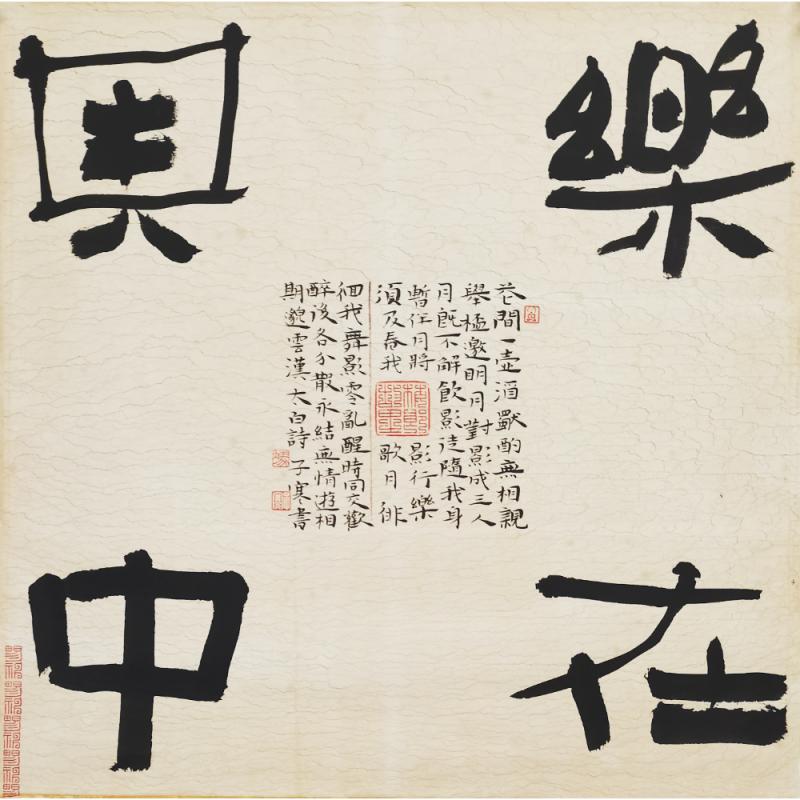 樂在
其中
花間一壺酒獨酌無相親
舉桮邀明月對影成三人
月既不解飲影徒隨我身
暫伴月將影行樂
須及春我歌月徘
徊我舞影零亂醒時同交歡
醉後各分散永結無情遊相
期邈雲漢太白詩 子寒書